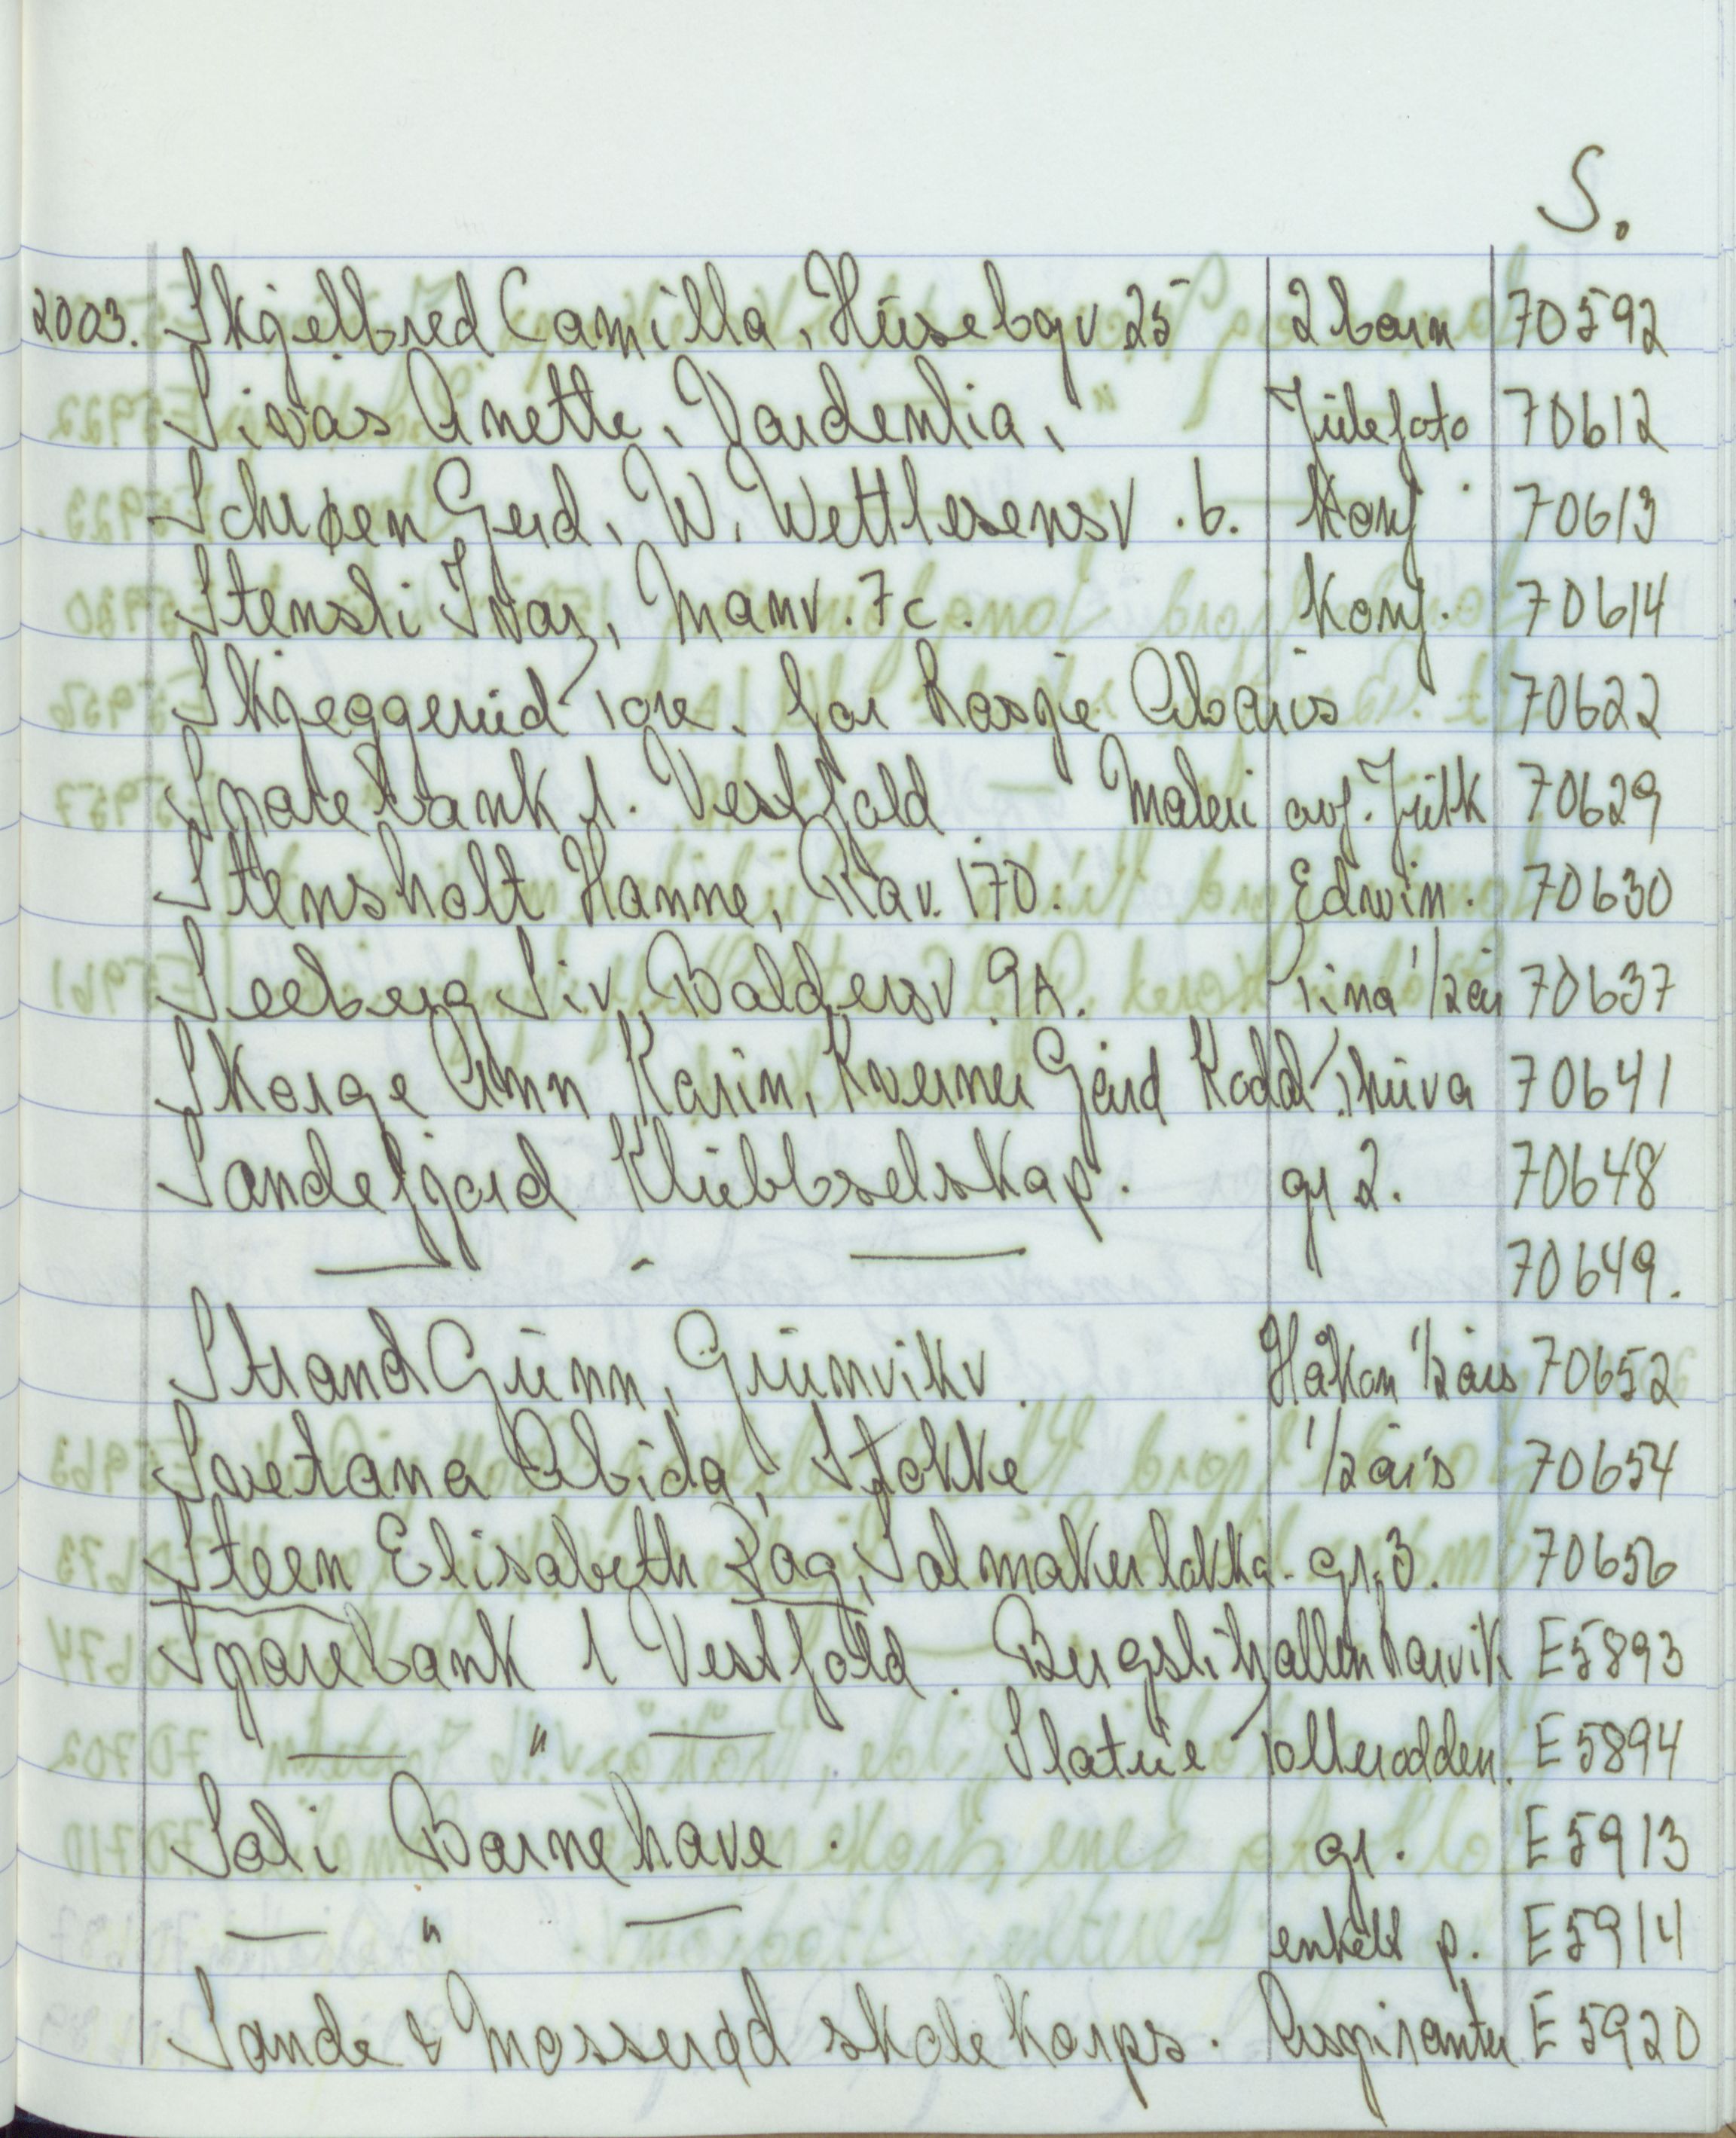 S.
2003. Skjelbred Camilla, Husebyv 25 2 barn 70592
Sivas Anette, Vardenlia, Julefoto 70612
Schrøen Gerd, W. Wettlesensv .6. Konf 70613
Stensli Ivar, Manv. 7c. Konf. 70614
Skjeggerud Tore. for 70622
Sparebank 1. Vestfold Maleri av J. Julk 70629
Stensholt Hanne, Råv. 170. Edwin. 70630
Seeberg Siv, Baldersv 9A. Tina 1/2 år 70637
Skorge Ann Karin, Gård Kodal, Thuva 70641
Sandefjord Klubbselskap. gr 2. 70648
— " — 70649.
Strand Gunn, Grumvikv Håkon 1/2 års 70652
Svetana Abida, Stokke 1/2 års 70654
Steen Elisabeth Råg, Salmakerløkka. gr. 3. 70656
Sparebank 1 Vestfold. Bergslihallen Larvik E5893
— " — Statue Tollerodden. E5894
Soli Barnehave. gr. E5913
— " — enkelt p. E5914
Sande & Mosserød skolekorps. Aspiranter E5920